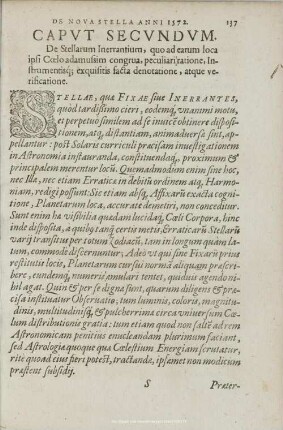 DE NOVA STELLA ANNI 1572. 137
CAPVT SECVNDVM.
De Stellarum Inerrantium, quo ad earum loca
ipsi Cœlo adamussim congrua, peculiari ratione, In-
strumentisq; exquisitis facta denotatione, atque ve-
rificatione.
STELLAE, quæ FIXAE siue INERRANTES,
quod tardissimo cieri, eodemq, vnanimi motu,
et perpetuo similem ad se inuicē obtinere disposi-
tionem, atq, distantiam, animaduersæ sint, ap-
pellantur: post Solaris curriculi præcisam inuestigationem
in Astronomia instauranda, constituendaq,, proximum &
principalem merentur locū. Quemadmodum enim sine hoc,
nec Illa, nec etiam Erratica in debitū ordinem atq, Harmo-
niam, redigi possunt: Sic etiam absq, Affixarū exacta cogni-
tione, Planetarum loca, accurate demetiri, non conceditur.
Sunt enim hæ visibilia quædam lucidaq, Cœli Corpora, hinc
inde disposita, a quibq tanq certis metis, Erraticarū Stellarū
varij transitus per totum Zodiacū, tam in longum quàm la-
tum, commode discernuntur; Adeò vt qui sine Fixarū prius
restitutis locis, Planetarum cursui normā aliquam præscri-
bere, eundemq, numeris æmulari tentet, quiduis agendo ni-
hil agat. Quin & per se dignæ sunt, quarum diligens & præ-
cisa instituatur Obseruatio; tum luminis, coloris, magnitu-
dinis, multitudinisq, & pulcherrima circa vniuersum Cœ-
lum distributionis gratia: tum etiam quod non saltē ad rem
Astronomicam penitius emucleandam plurimum faciant,
sed Astrologiæ quoque quæ Cœlestium Energiam scrutatur,
rite quoad eius fieri potest, tractandæ, ipsæmet non modicum
præstent subsidij.
S Præter-